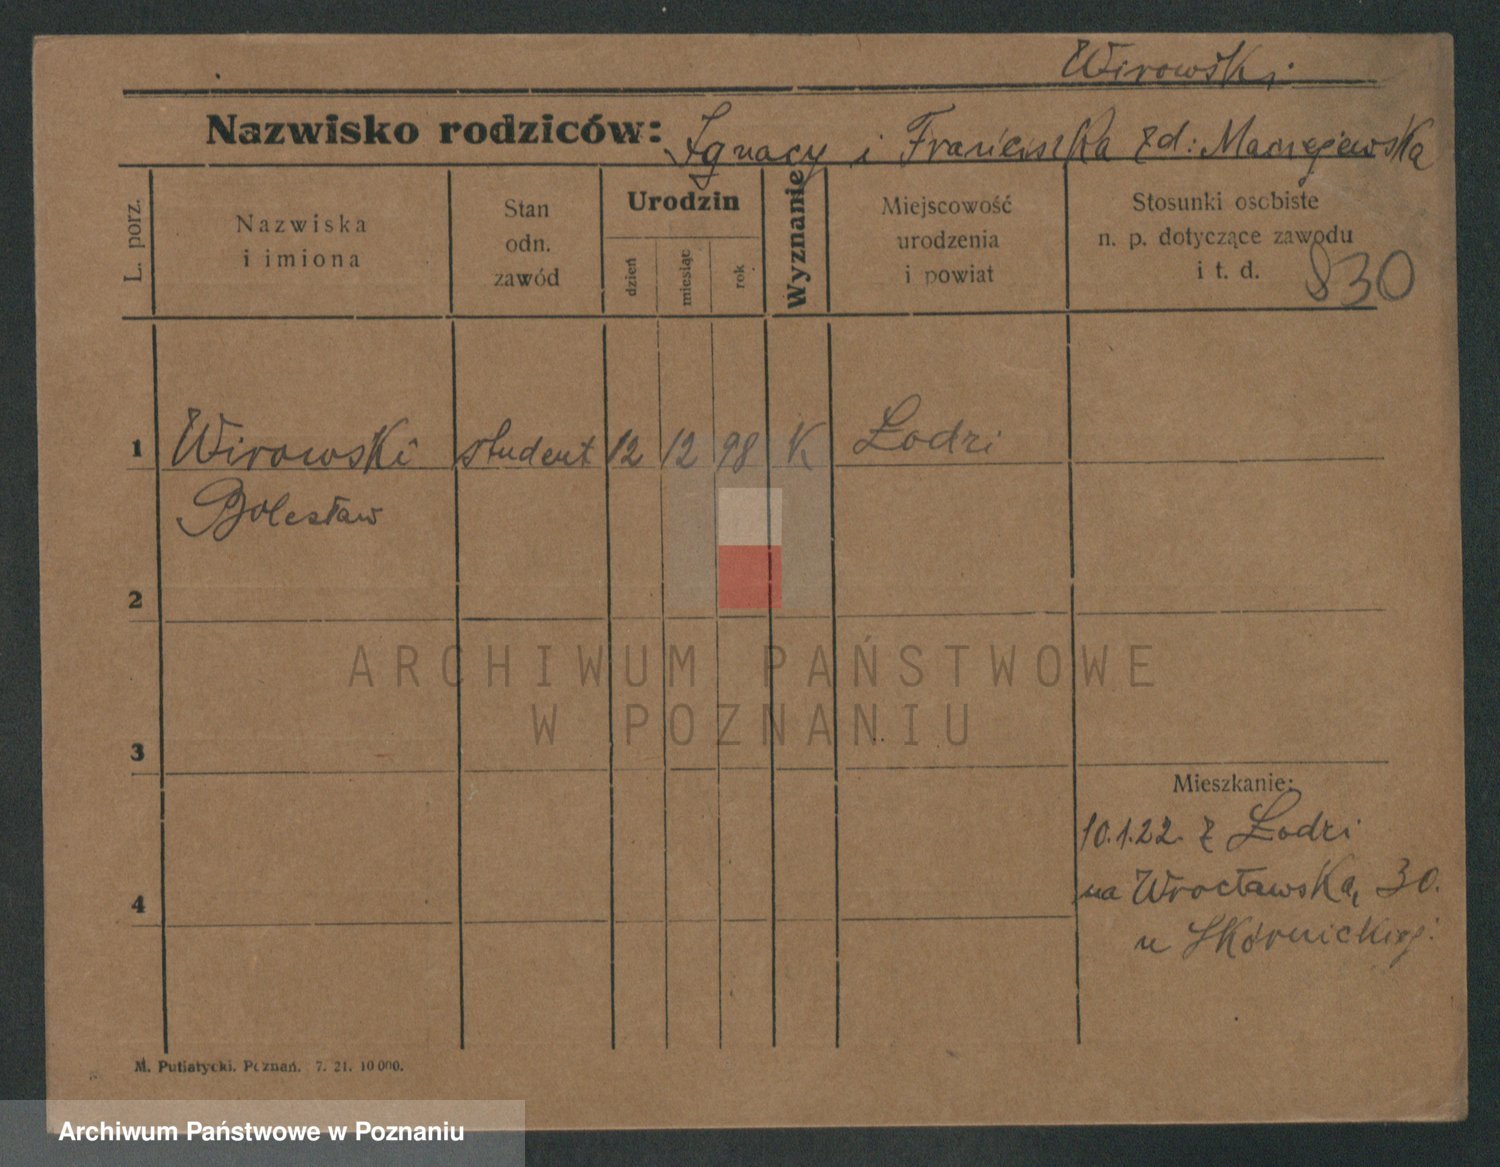 Wirowski
Nazwisko rodziców: Ignacy i Franciszka zd: Maciejewska
L. porz.
Nazwiska
i imiona
Stan
odn.
zawód
Urodzin
dzień
miesiąc
rok
Wyznanie
Miejscowość
urodzenia
i powiat
Stosunki osobiste
n. p. dotyczące zawodu
i t. d.
830
1 Wirowski student 12 12 98 K Łodzi
Bolesław
2
3
4
Mieszkanie:
10.1.22. z Łodzi
na Wrocławska, 30.
u Skórnickiej.
M. Putiatycki. Poznań. 7. 21. 10 000.
ARCHIWUM PAŃSTWOWE
W POZNANIU
Archiwum Państwowe w Poznaniu